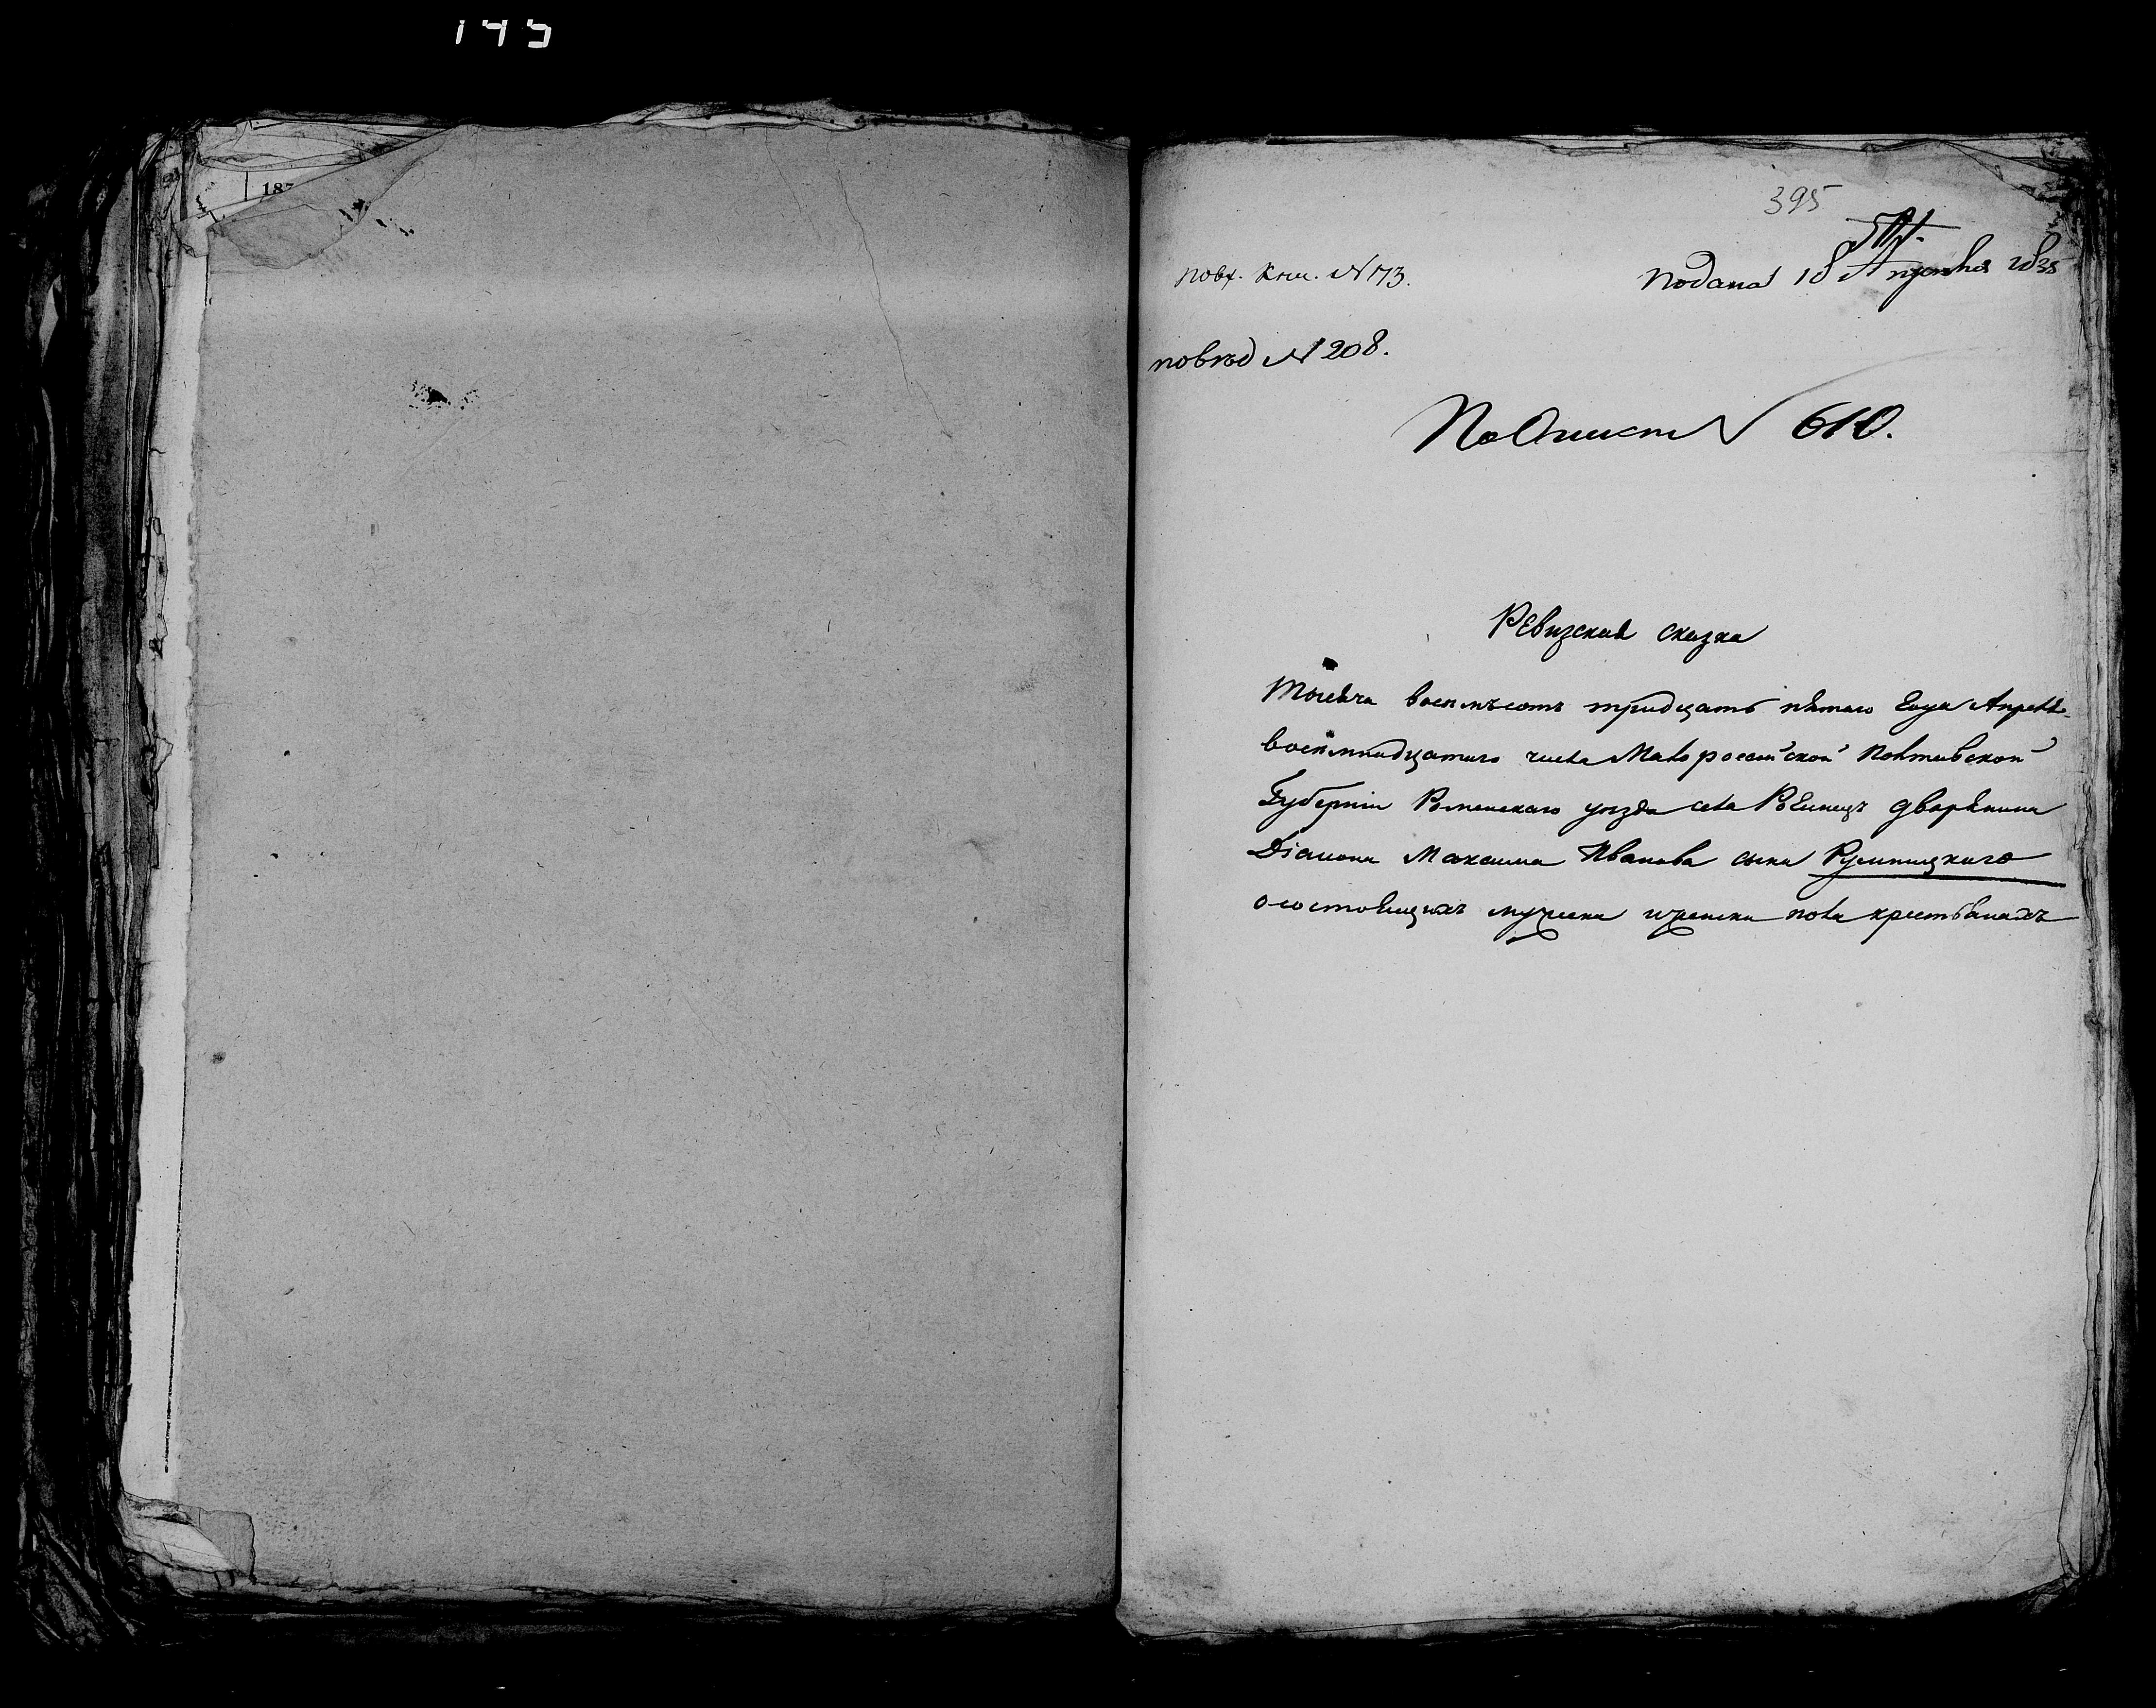 145
187
395
повх. Кни. № 173.
Подана 18 Апреля 1835
повѣд № 208.
По Описи № 610.
Ревизская сказка
Тысеча восемъсотъ тридцать пятаго года Апреля
восемнадцатого числа Малороссийской Полтавской
Губерніи Роменскаго уезда села дворянина
Діакона Максима Иванова сына
о состоящихъ мужеска и женска пола крестьянахъ